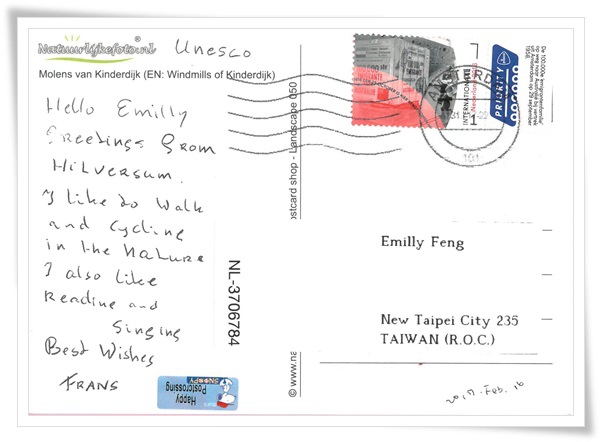 Natuurlijkefoto.nl®
Unesco
Molens van Kinderdijk (EN: Windmills of Kinderdijk)
Hello Emilly
Greetings from
Hilversum.
I like to walk
and cycling
in the Nature
I also like
Reading and
Singing
Best Wishes
FRANS
Happy
Postcrossing
NL-3706784
© www.na
ostcard shop - Landscape 050
INTERNATIONAAL
1
PRIORITY
1956
Emilly Feng
New Taipei City 235
TAIWAN (R.O.C.)
2017. Feb. 16